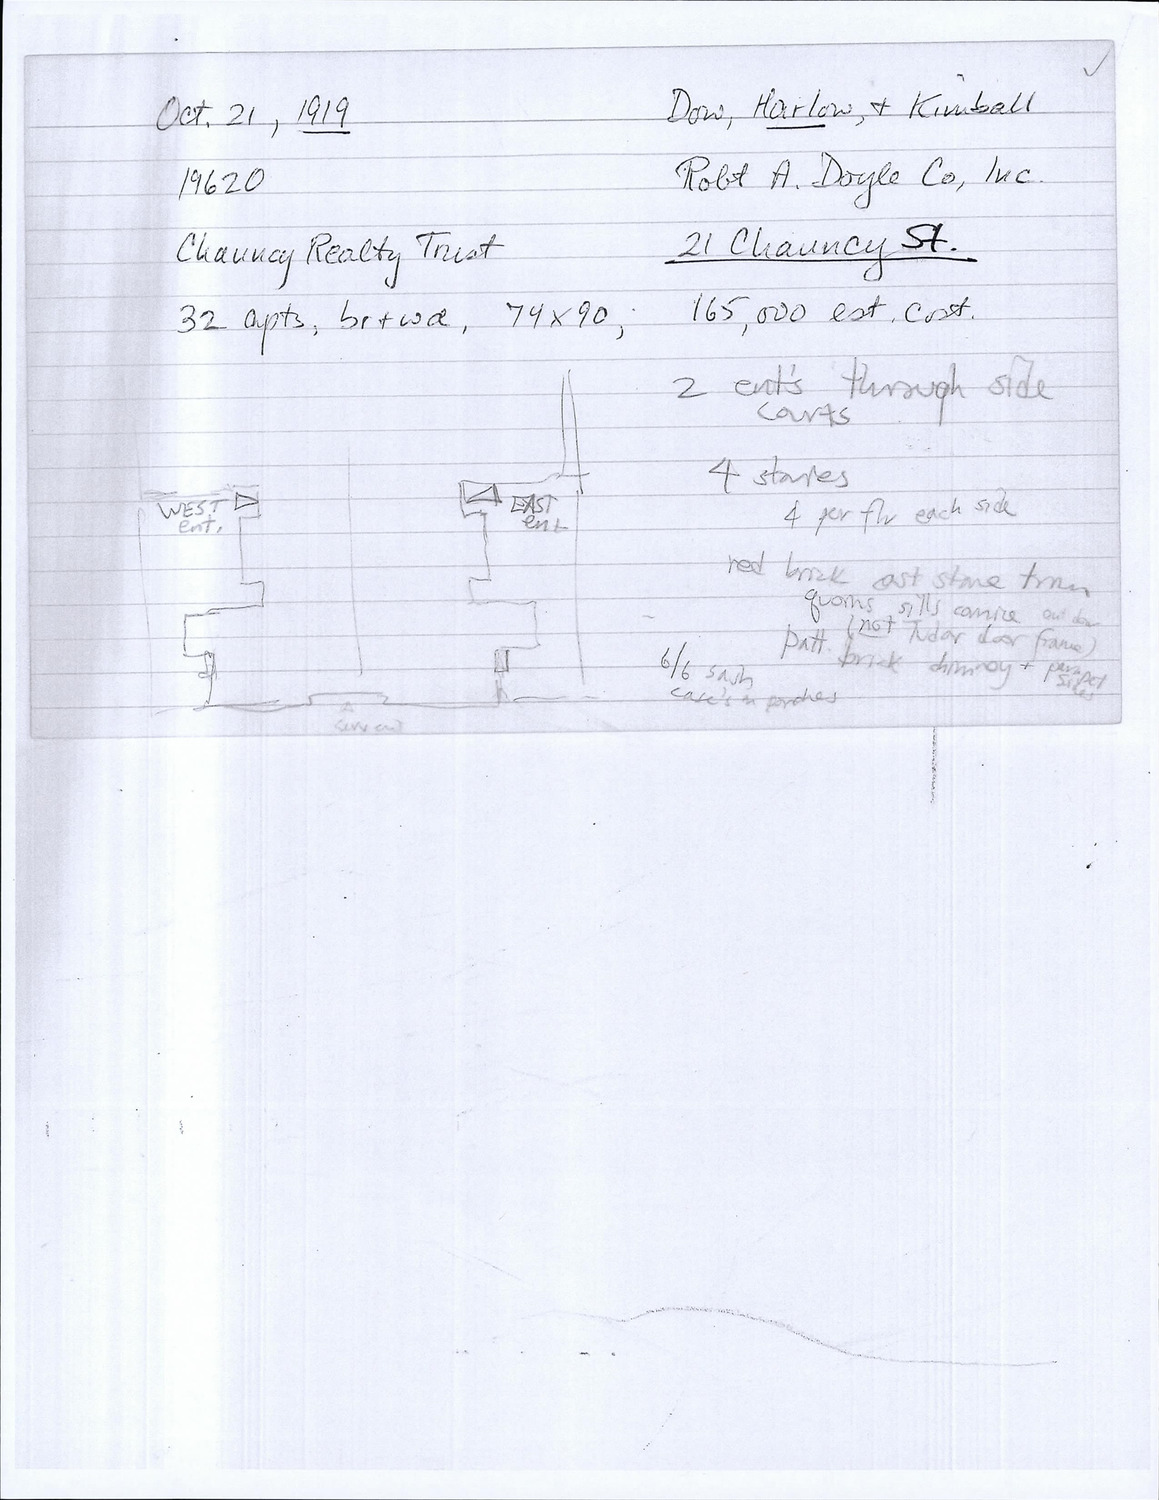 Oct. 21, 1919
Dow, Harlow, + Kimball
19620
Robt A. Doyle Co, Inc.
Chauncy Realty Trust
21 Chauncy St.
32 apts, br+wd, 74x90; 165,000 est. cost.
2 ent's through side
courts
4 stories
4 per flr each side
WEST
ent.
EAST
ent
red brick cast stone trim
quoins sills cornice
(not Tudor door frame)
patt. brick chimney + parapet
sides
6/6 sash
case's in porches